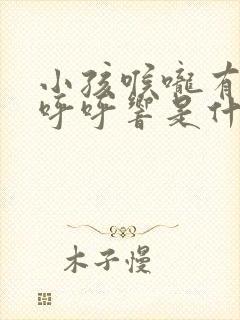 小孩喉咙有
呼呼响是什
木子慢